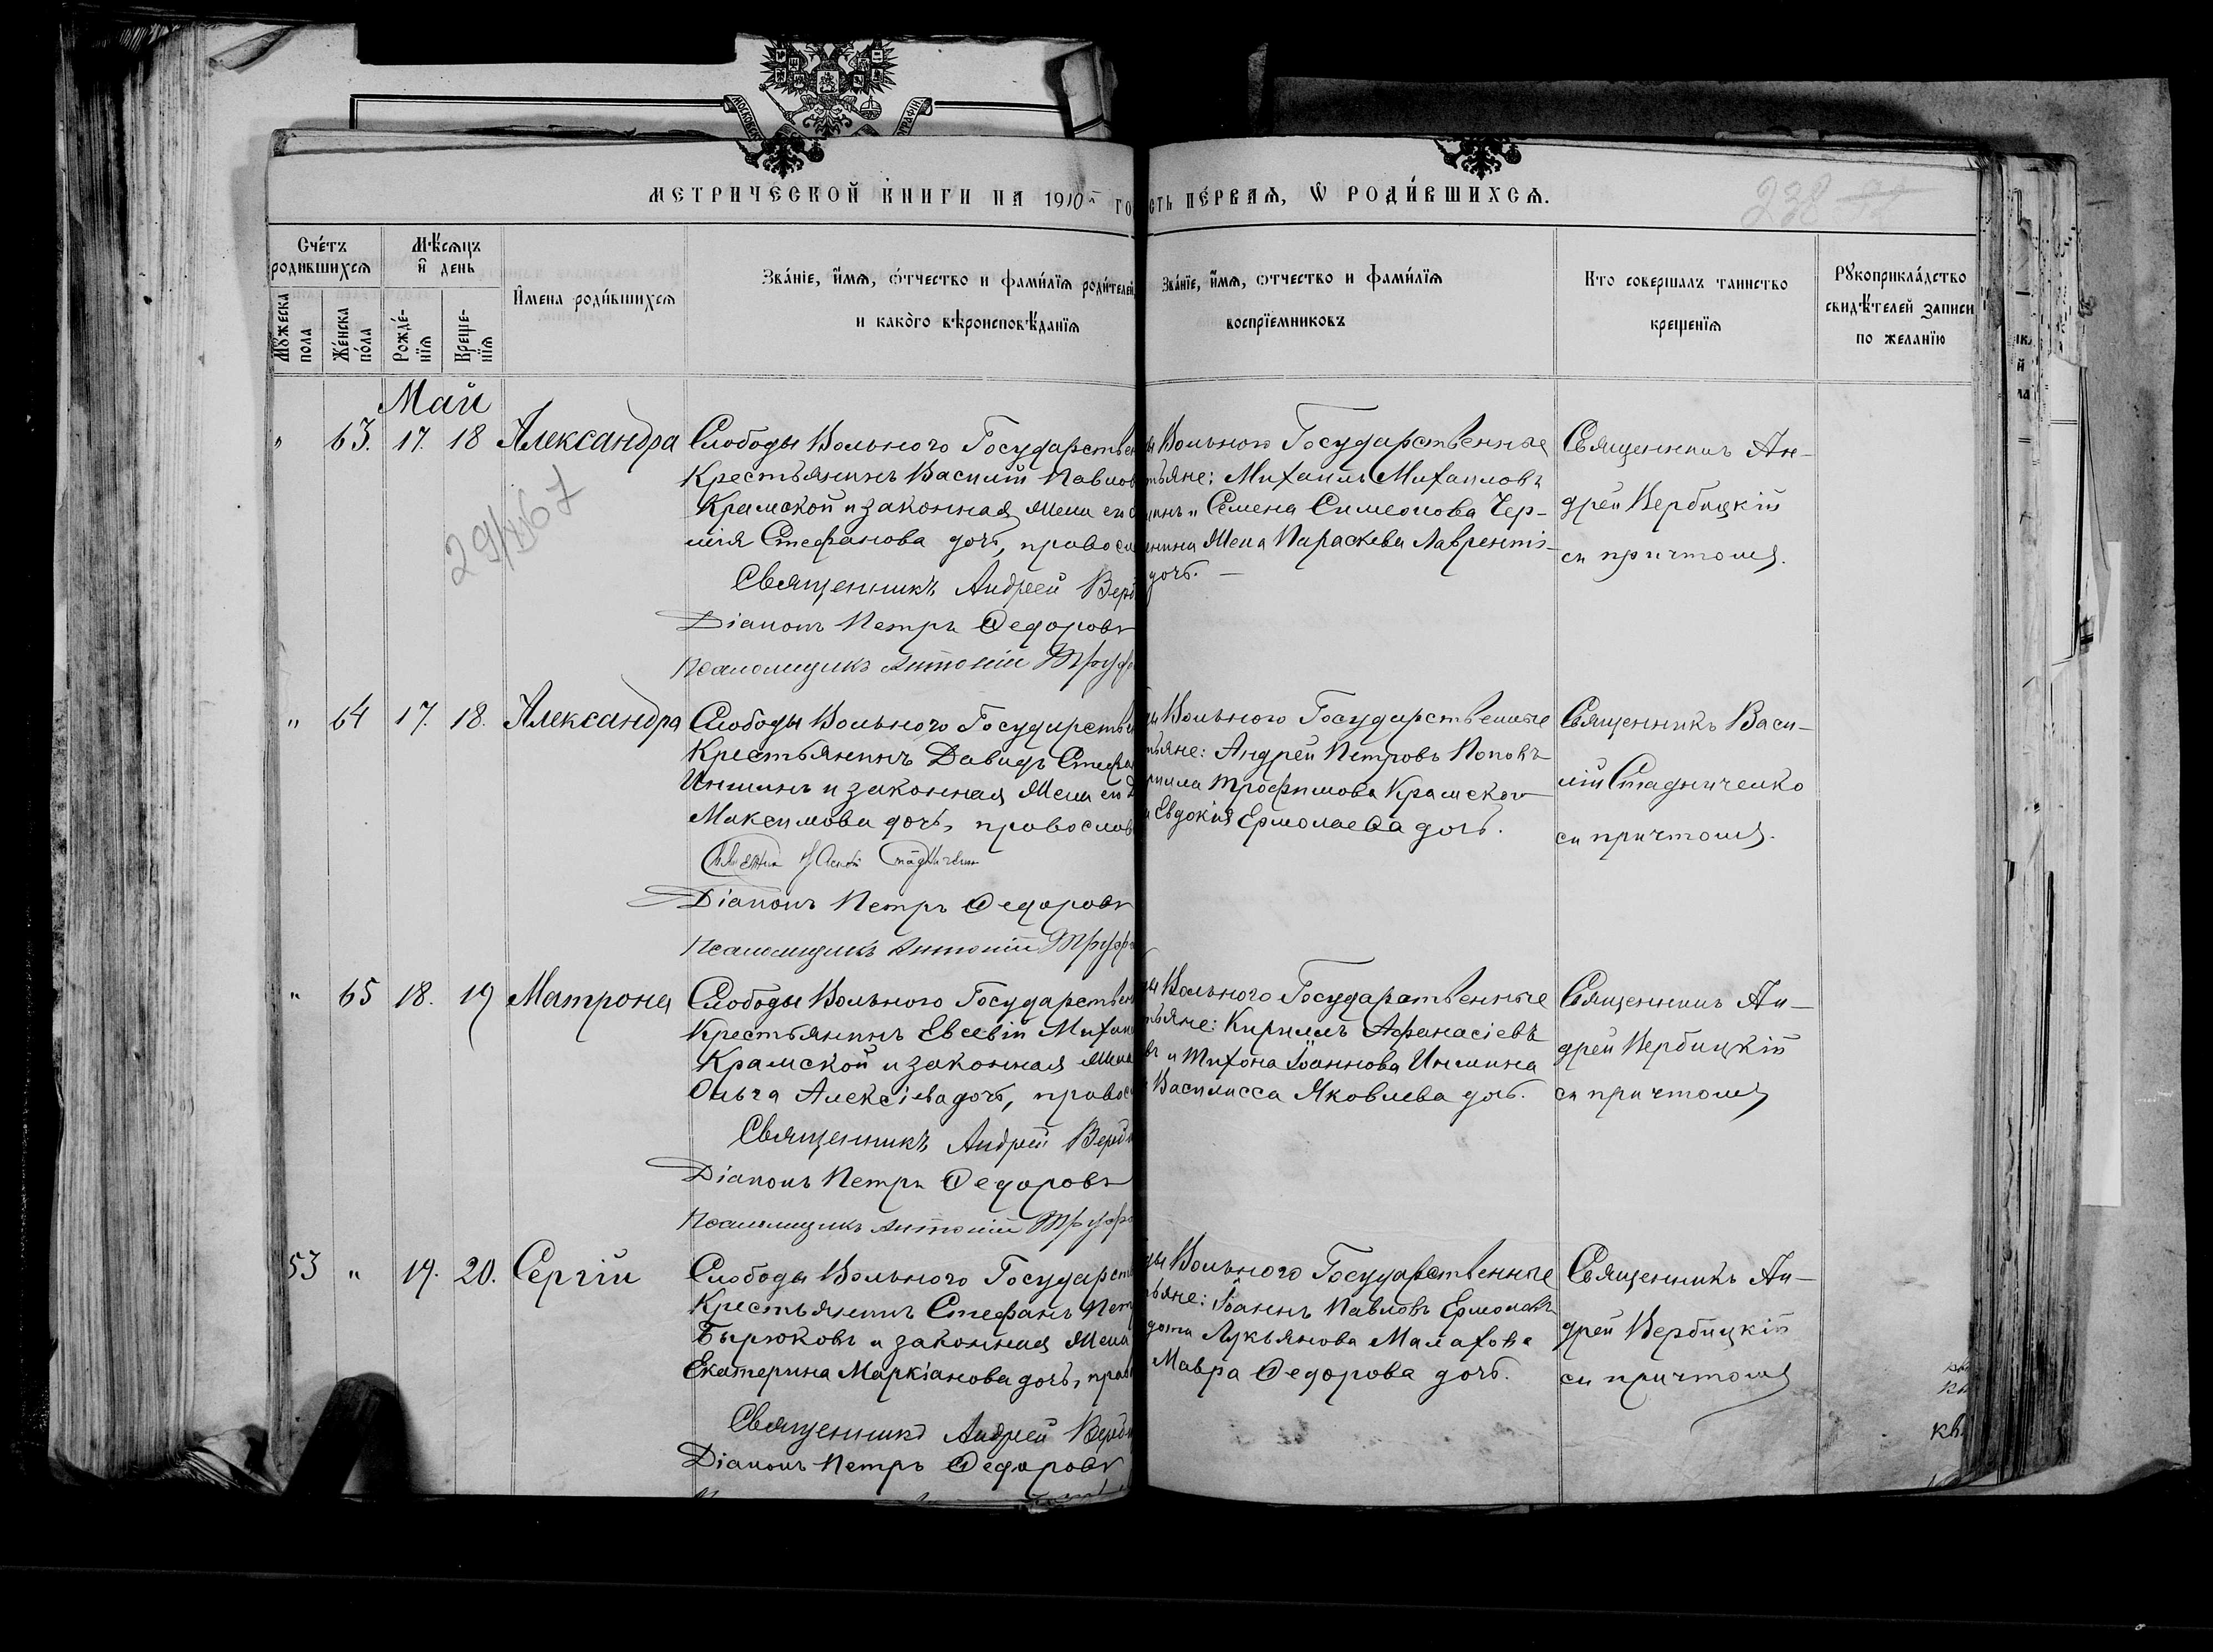 МЕТРИЧЕСКОЙ КНИГИ НА 1910й ГО
СТЬ ПЕРВАЯ, Ѡ РОДИВШИХСЯ.
Счетъ родившихся
Мѣсяцъ и день
Имена родившихся
Званіе, имя, отчество и фамилія родителей,
и какого вѣроисповѣданія
Мужеска пола
Женска пола
Рожденія
Крещенія
Званіе, имя, отчество и фамилія
воспріемниковъ
Кто совершалъ таинство
крещенія
Рукоприкладство
свидѣтелей записи
по желанію
Май
" 63. 17. 18 Александра
Слободы Вольного Государствен
Крестьянинъ Василій Павлов
Крамской и законная жена его
Стефанова дочь, правосл
Священникъ Андрей Верб
Діаконъ Петръ Ѳедоровъ
Псаломщикъ Антоній Труф
ы Вольного Государственные
тьяне: Михаилъ Михаиловъ
инъ и Семена Симеонова Чер-
жена Параскева Лаврентіе-
дочь. —
Священникъ Ан-
дрей Вербицкій
съ причтомъ.
" 64 17. 18. Александра
Слободы Вольного Государствен
Крестьянинъ Давидъ Стефа
Иншинъ и законная жена его
Максимова дочь, православ
Діаконъ Петръ Ѳедоровъ
Псаломщикъ Антоній Труф
ы Вольного Государственные
тьяне: Андрей Петровъ Поповъ
Трофимова Крамского
Евдокія Ермолаева дочь.
Священникъ Васи-
лій Стадниченко
съ причтомъ.
" 65 18. 19 Матрона
Слободы Вольного Государствен
Крестьянинъ Евсевій Михаи
Крамской и законная жена
Ольга Алексіева дочь, правос
Священникъ Андрей Верби
Діаконъ Петръ Ѳедоровъ
Псаломщикъ Антоній Труфа
ы Вольного Государственные
тьяне: Кириллъ Афанасіевъ
въ и Тихона Іоаннова Иншина
Василисса Яковлева дочь.
Священникъ Ан-
дрей Вербицкій
съ причтомъ
53 " 19. 20. Сергій
Слободы Вольного Государст
Крестьянинъ Стефанъ Пет
Бырюковъ и законная жена
Екатерина Маркіанова дочь, прав
Священникъ Андрей Верби
Діаконъ Петръ Ѳедоровъ
ды Вольного Государственные
тьяне: Іоаннъ Павловъ Ермоловъ
Лукьянова Малахова
Мавра Ѳедорова дочь.
Священникъ Ан-
дрей Вербицкій
съ причтомъ